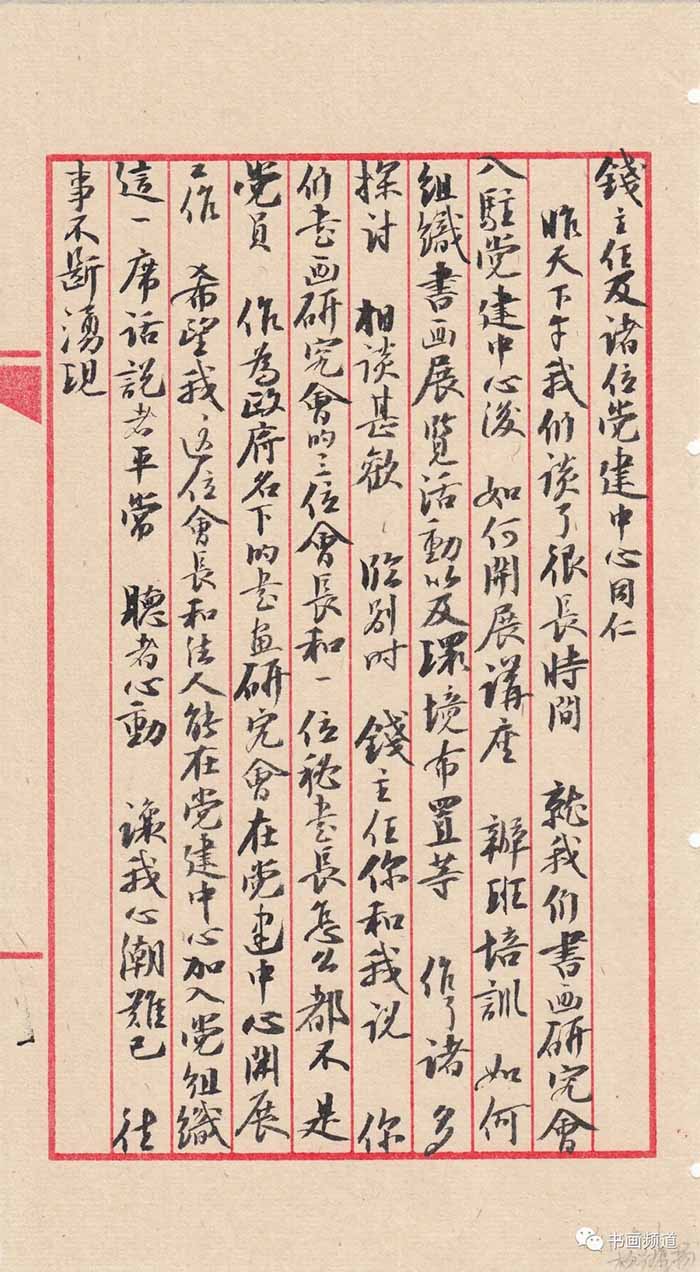 錢主任及诸位党建中心同仁
昨天下午我们谈了很長時间 就我们書画研究會
入駐党建中心後 如何開展講座 辦班培訓 如何
组織書画展覧活動以及環境布置等 作了诸多
探讨 相谈甚歡 临别时 錢主任你和我说 你
们书画研究會的三位會長和一位秘书長怎么都不是
党員 作為政府名下的书画研究會在党建中心開展
工作 希望我这位會長和法人能在党建中心加入党组織
這一席话説者平常 聴者心動 讓我心潮難已 往
事不斷湧現
书画频道